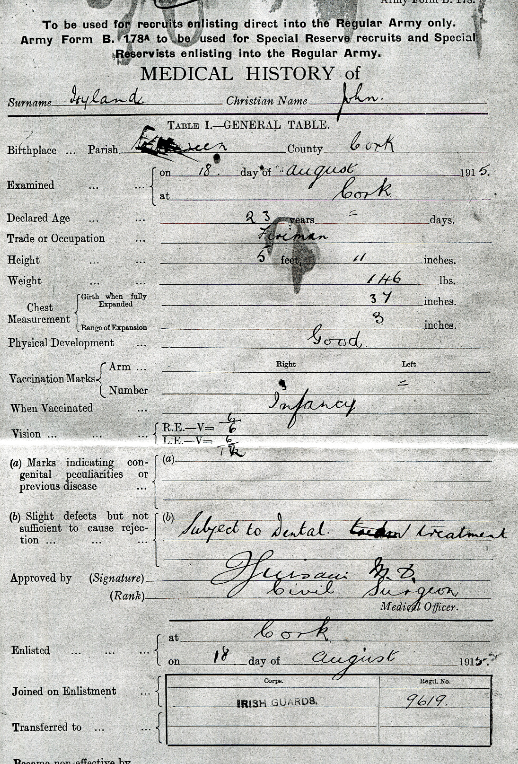 Army Form B. 178.
To be used for recruits enlisting direct into the Regular Army only.
Army Form B. 178A to be used for Special Reserve recruits and Special
Reservists enlisting into the Regular Army.
MEDICAL HISTORY of
Surname Hyland Christian Name John.
TABLE I.—GENERAL TABLE.
Birthplace ... Parish County Cork
Examined ... ... on 18. day of august 1915.
at Cork
Declared Age ... ... 23 years = days.
Trade or Occupation ... Fireman
Height ... ... 5 feet, 11 inches.
Weight ... ... 146 lbs.
Chest Measurement Girth when fully Expanded 37 inches.
Range of Expansion 3 inches.
Physical Development ... Good
Right Left
Vaccination Marks Arm ...
Number =
When Vaccinated ... Infancy
Vision ... ... ... R.E.—V= 6/6
L.E.—V= 6/12
(a) Marks indicating con- (a)
genital peculiarities or
previous disease ...
(b) Slight defects but not (b) Subject to Dental treatment
sufficient to cause rejec-
tion ... ... ...
Approved by (Signature) M.D.
(Rank) Civil Surgeon
Medical Officer.
Enlisted ... ... ... at Cork
on 18 day of august 1915.
Corps. Regtl. No.
Joined on Enlistment ... IRISH GUARDS. 9619.
Transferred to ... ...
Became non-effective by